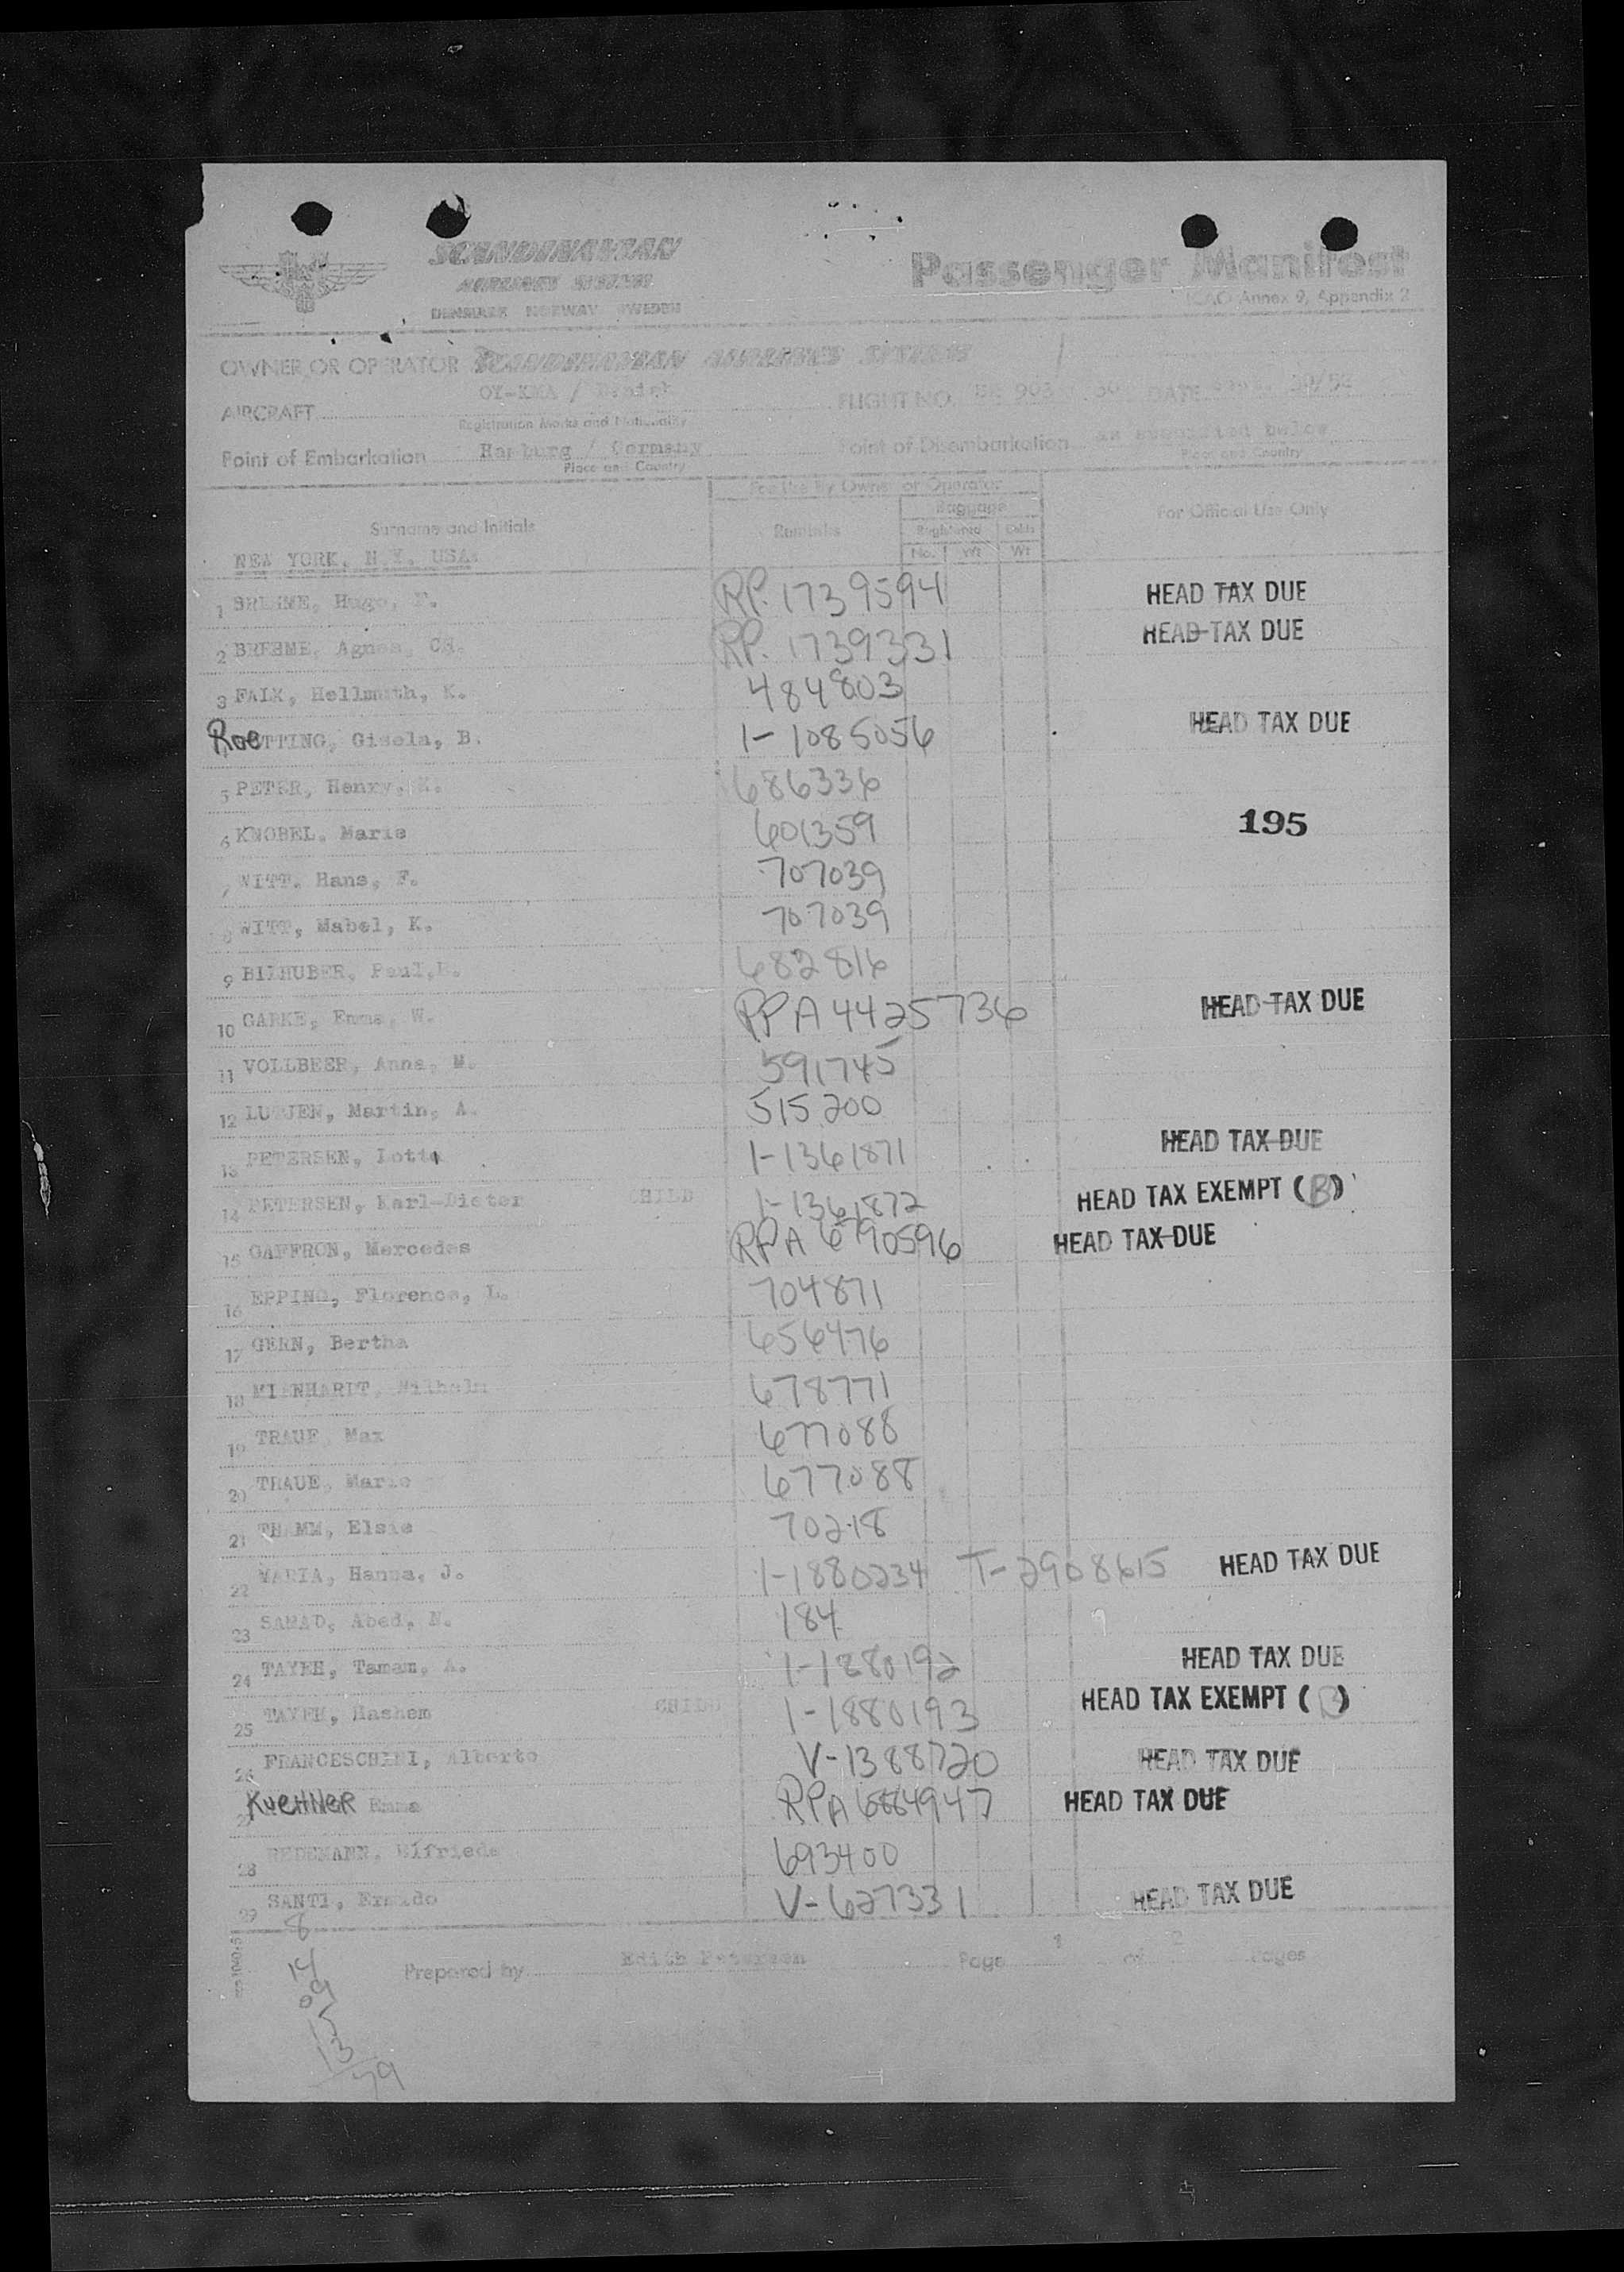 SCANDINAVIAN
AIRLINES SYSTEM
DENMARK NORWAY SWEDEN
Passenger Manifest
ICAO Annex 9, Appendix 2
OWNER OR OPERATOR SCANDINAVIAN AIRLINES SYSTEM
AIRCRAFT OY-KMA /
FLIGHT NO. 903 DATE 30/52
Registration Marks and Nationality
Point of Embarkation Hamburg / Germany
Point of Disembarkation as below
Place and Country
Place and Country
For Use By Owner or Operator
Baggage
Surname and Initials
Remarks
Registered
For Official Use Only
No. Wt Wt
NEW YORK, N.Y. USA.
1 BREHME, Hugo, F. RP. 1739594 HEAD TAX DUE
2 BREHME, Agnes, CH. RP. 1739331 HEAD TAX DUE
3 FALK, Hellmuth, K. 484803
Roe TTING, Gisela, B. 1-1085056 HEAD TAX DUE
5 PETER, Henry, K. 686336
6 KNOBEL, Marie 601359 195
7 WITT, Hans, F. 707039
8 WITT, Mabel, K. 707039
9 BILHUBER, Paul, 682816
10 GARKE, Emma, W. RPA 4425736 HEAD TAX DUE
11 VOLLBEER, Anna, M. 591745
12 LUTJEN, Martin, A. 515200
13 PETERSEN, Lotte 1-1361871 HEAD TAX DUE
14 PETERSEN, Karl-Dieter CHILD 1-1361872 HEAD TAX EXEMPT (B)
15 GAFFRON, Mercedes RPA 6790596 HEAD TAX DUE
16 EPPING, Florence, L. 704871
17 GERN, Bertha 656476
18 MIENHARDT, Wilhelm 678771
19 TRAUE, Max 677088
20 TRAUE, Marie 677088
21 THAMM, Elsie 70218
22 Hanna, J. 1-1880234 T-2908615 HEAD TAX DUE
23 SAMAD, Abed, N. 184
24 TAYEH, Tamam, A. 1-1880192 HEAD TAX DUE
25 TAYEH, Hashem CHILD 1-1880193 HEAD TAX EXEMPT (B)
26 FRANCESCHINI, Alberto V-1388720 HEAD TAX DUE
27 KUEHNER Emma RPA 6884947 HEAD TAX DUE
28 Elfriede 693400
29 SANTI, V-627331 HEAD TAX DUE
8
14
09
15
13
79
Prepared by Edith Petersen Page 1 of 2 Pages